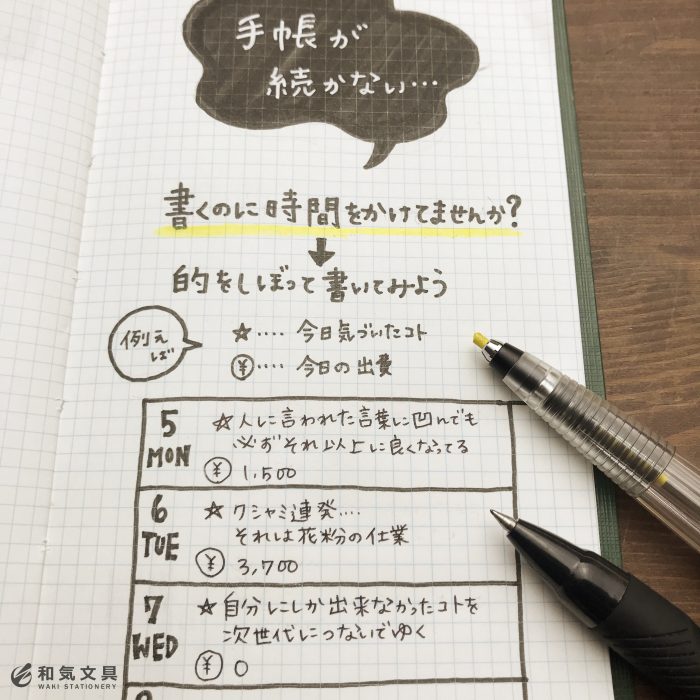 手帳が
続かない…
書くのに時間をかけてませんか?
的をしぼって書いてみよう
例えば
☆‥‥今日気づいたコト
¥‥‥今日の出費
5
MON
☆人に言われた言葉に凹んでも
必ずそれ以上に良くなってる
¥ 1,500
6
TUE
☆クシャミ連発‥‥
それは花粉の仕業
¥ 3,700
7
WED
☆自分にしか出来なかったコトを
次世代につないでゆく
¥ 0
和気文具
WAKI STATIONERY